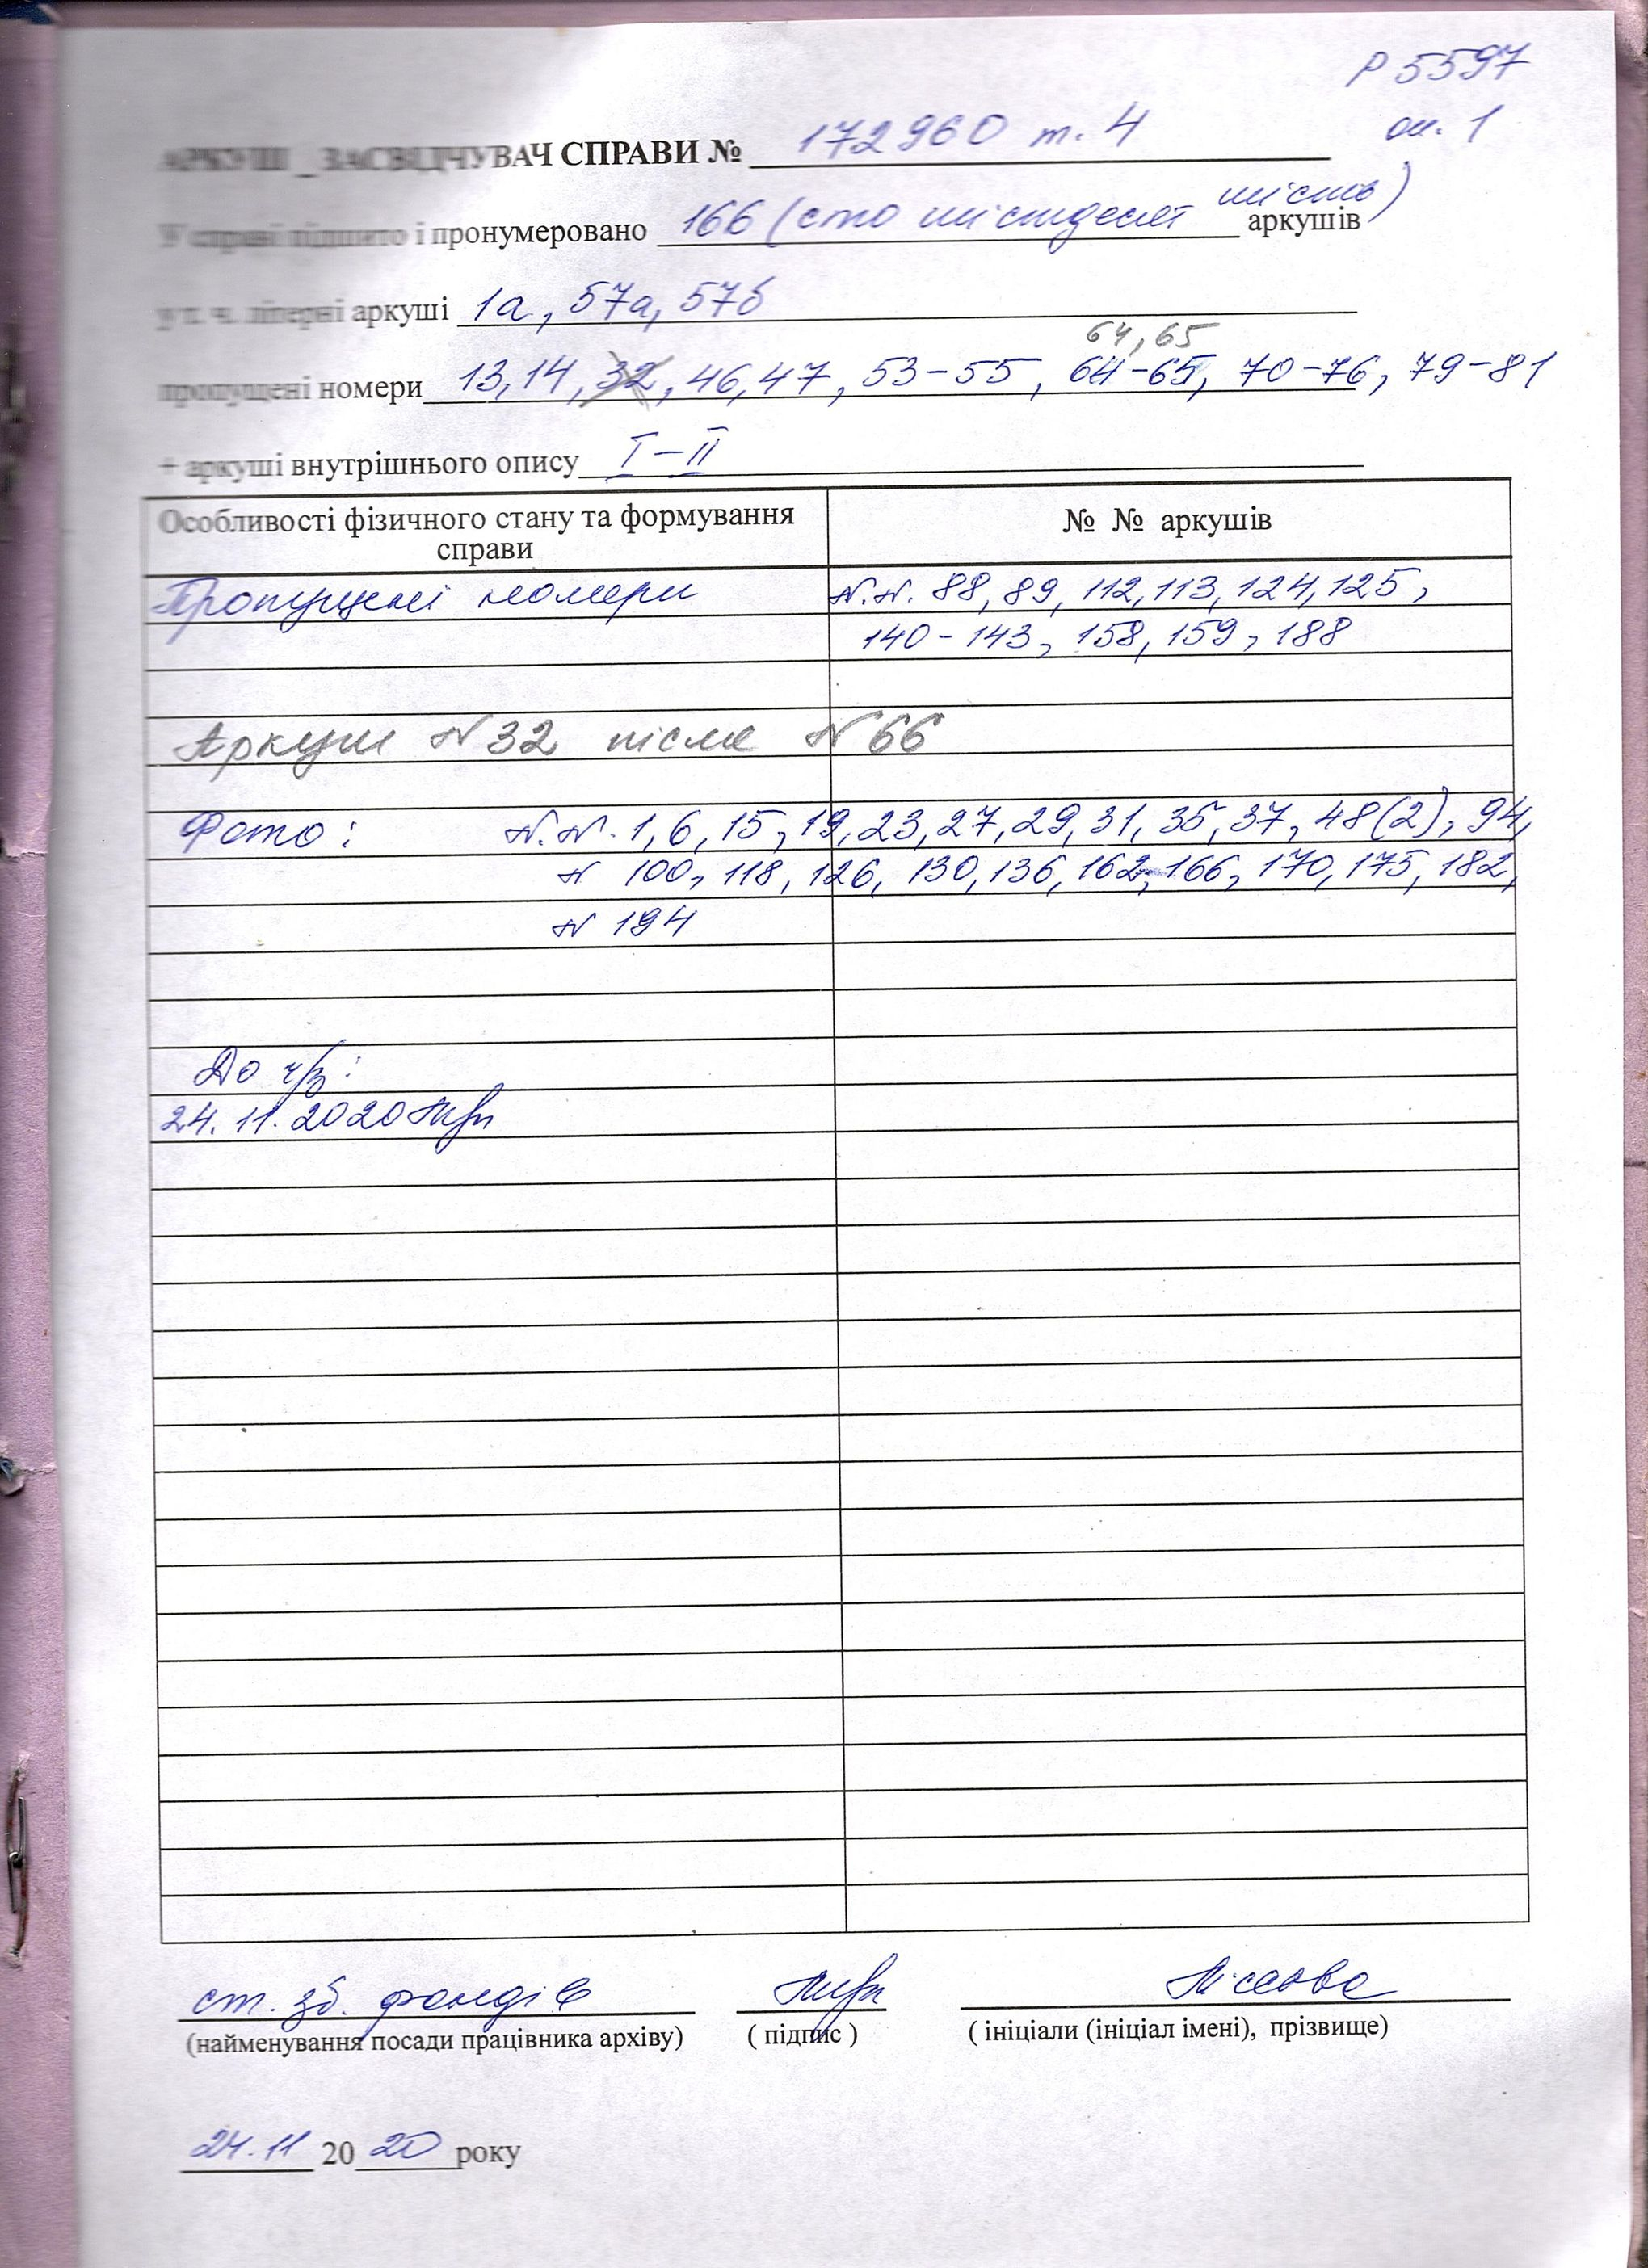 Р 5597
оп. 1
АРКУШ _ ЗАСВІДЧУВАЧ СПРАВИ № 172960 т. 4
У справі підшито і пронумеровано 166 (сто шістдесят шість) аркушів
у т. ч. літерні аркуші 1а, 57а, 57б
64, 65
пропущені номери 13, 14, 32, 46, 47, 53-55, 64-65, 70-76, 79-81
+ аркуші внутрішнього опису I-II
Особливості фізичного стану та формування справи
№ № аркушів
Пропущені номери N.N. 88, 89, 112, 113, 124, 125,
140-143, 158, 159, 188
Аркуш N 32 після N 66
Фото: N.N. 1, 6, 15, 19, 23, 27, 29, 31, 35, 37, 48(2), 94,
N 100, 118, 126, 130, 136, 162, 166, 170, 175, 182,
N 194
До ч/з:
24. 11. 2020
ст. зб. фондів
(найменування посади працівника архіву) ( підпис ) ( ініціали (ініціал імені), прізвище)
24.11 2020 року